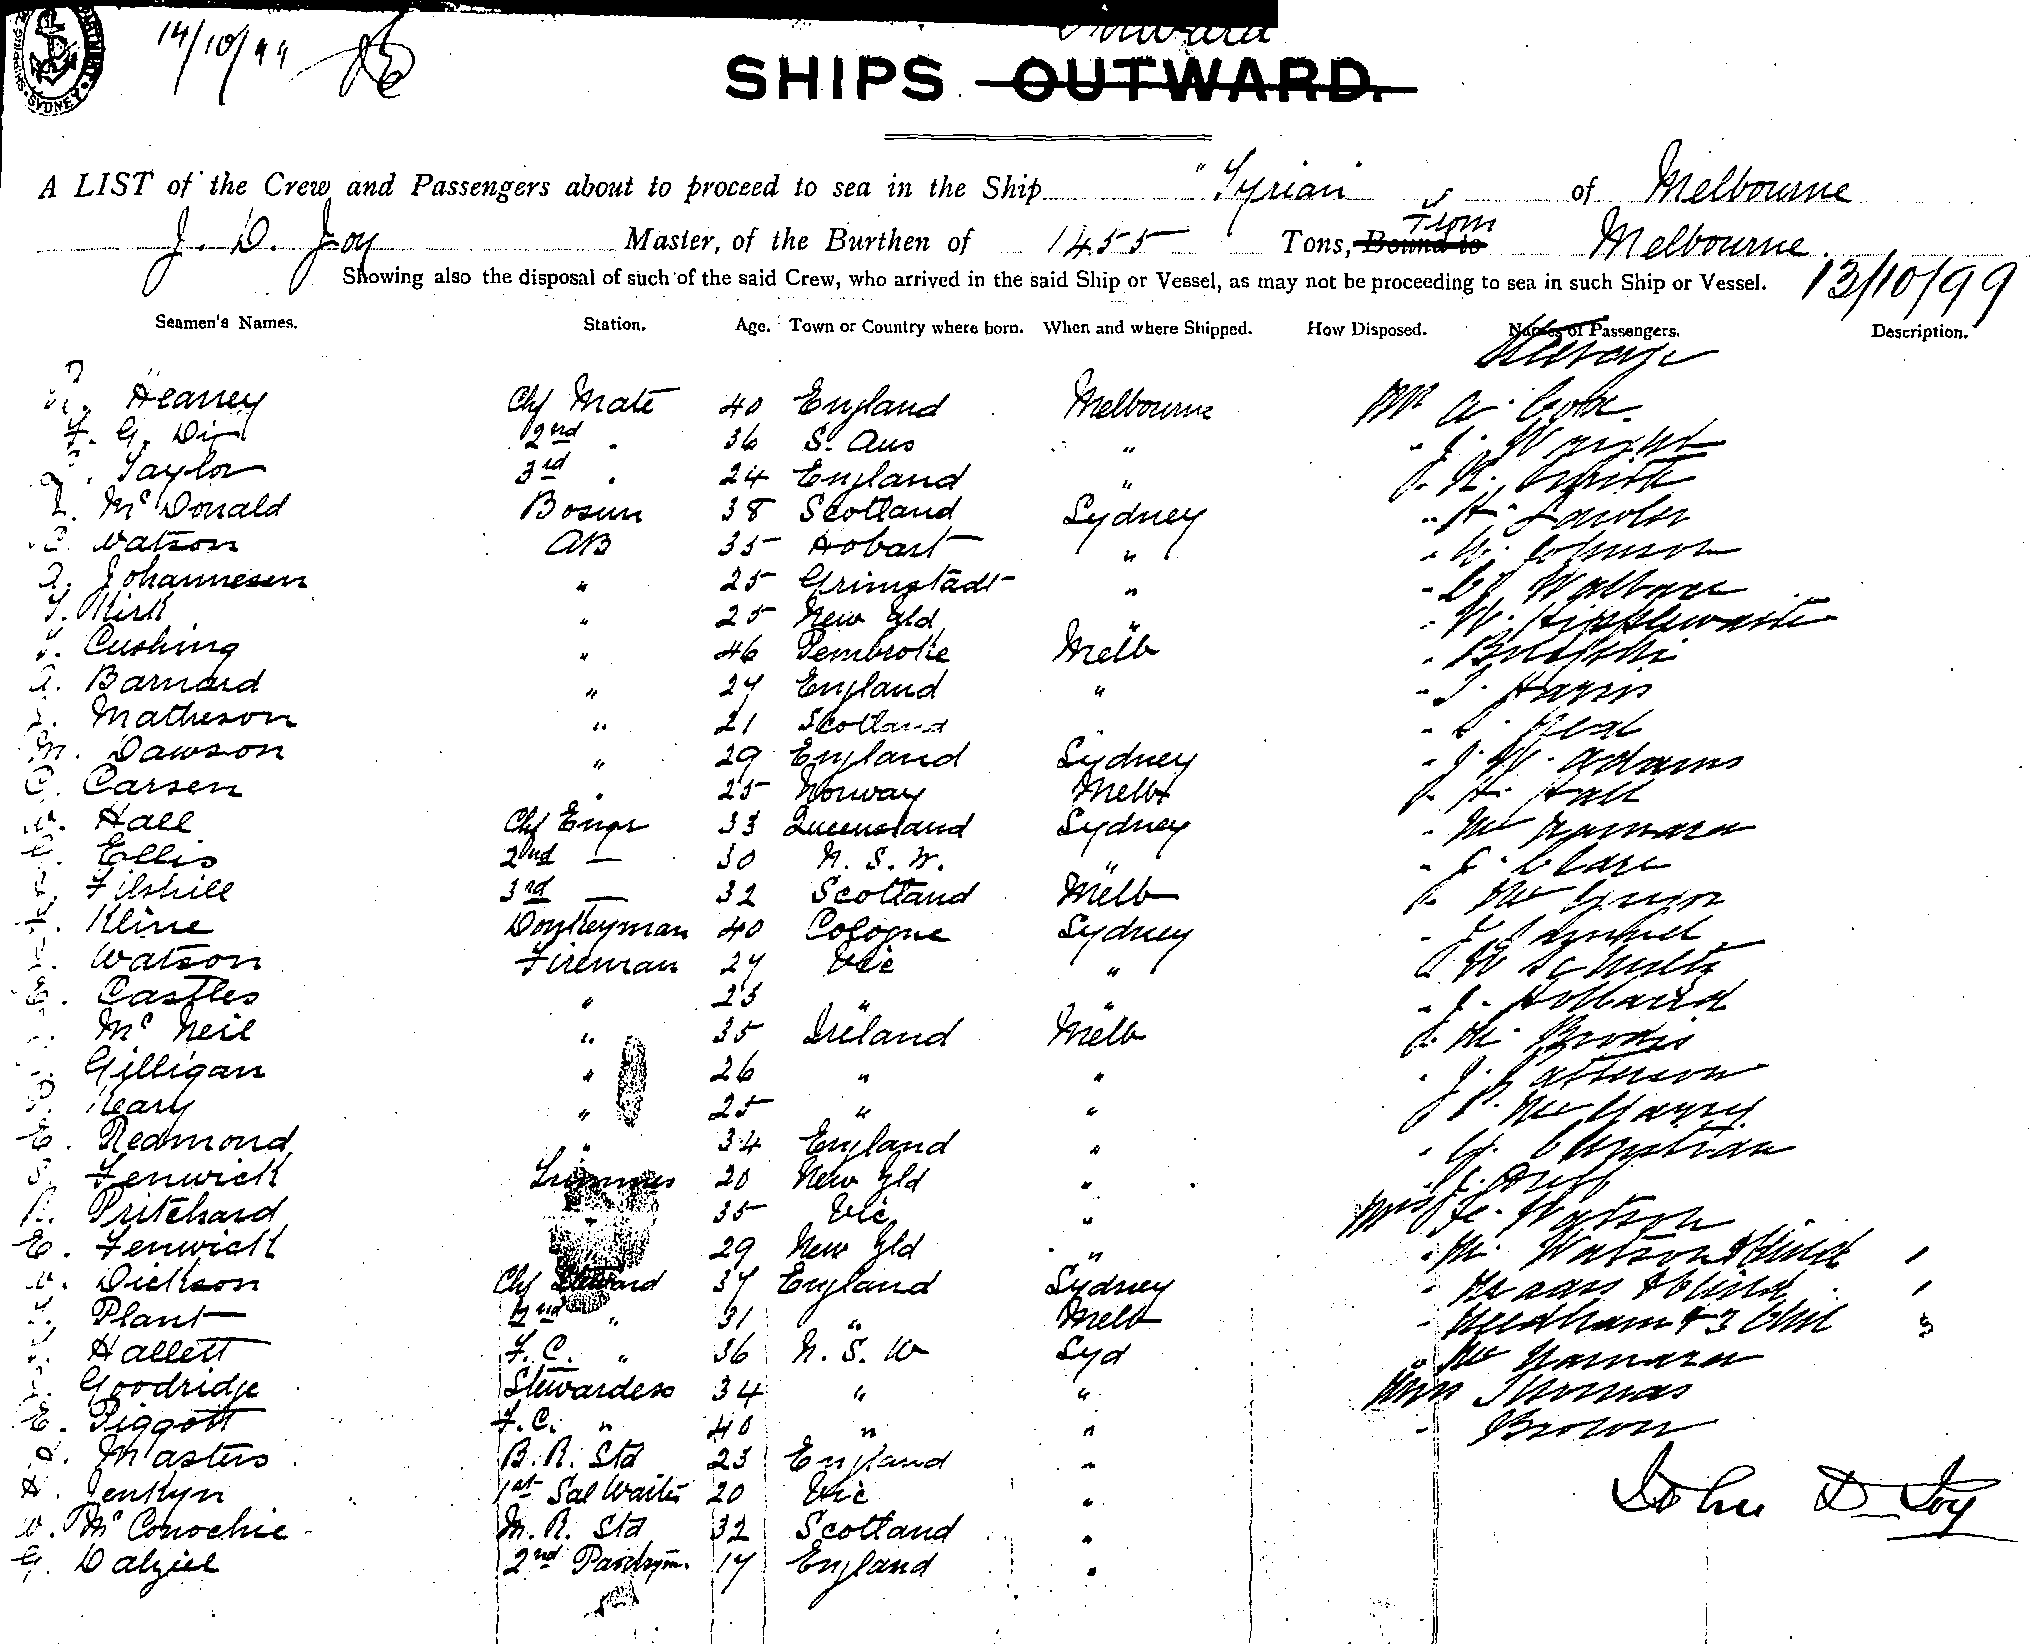 14/10/99
Inward
SHIPS OUTWARD.
A LIST of the Crew and Passengers about to proceed to sea in the Ship "Syrian of Melbourne
J. D. Joy Master, of the Burthen of 1455 Tons, Bound to From Melbourne
Showing also the disposal of such of the said Crew, who arrived in the said Ship or Vessel, as may not be proceeding to sea in such Ship or Vessel. 13/10/99
Seamen's Names. Station. Age. Town or Country where born. When and where Shipped. How Disposed. Names of Passengers. Description.
Steerage
Heaney Chf Mate 40 England Melbourne Mr A.
F. G. Dix 2nd " 36 S. Aus " " J. Wright
Taylor 3rd " 24 England "
McDonald Bosun 38 Scotland Sydney " H. Lawler
Watson AB 35 Hobart " " W. Johnson
Johannesen " 25 Grimstadt "
Kirk " 25 New Zld "
Cushing " 46 Pembroke Melb
Barnard " 27 England " " Harris
Matheson " 21 Scotland
M. Dawson " 29 England Sydney " J. W. Adams
C. Carsen " 25 Norway Melb H. Hall
Hall Chf Engr 33 Queensland Sydney " McNamara
Ellis 2nd — 30 N. S. W. " " J. Clare
Filshill 3rd — 32 Scotland Melb
Kline Donkeyman 40 Cologne Sydney
Watson Fireman 27 Vic " W Schultz
E. Castles " 23 " " " J. Holland
McNeil " 35 Ireland Melb
Gilligan " 26 " " " J. Patterson
Keary " 25 " "
E. Redmond " 34 England " " Christian
S. Fenwick Trimmer 20 New Zld "
R. Pritchard 35 Vic " Mrs Watson
E. Fenwick 29 New Zld " " M. Watson & Child 1
Dickson Chf Steward 37 England Sydney " & Child 1
Plant 2nd " 31 " Melb " Needham & 3 Chil 3
Hallett F. C. " 36 N. S. W Syd " McNamara
Goodridge Stewardess 34 " " Miss Thomas
E. Piggott F. C. " 40 " " " Brown
Masters B. R. Std 23 England "
H. Jenkyn 1st Sal Waiter 20 Vic " John D Joy
McConochie M. R. Std 32 Scotland "
G. Dalziel 2nd Pantrym. 17 England "